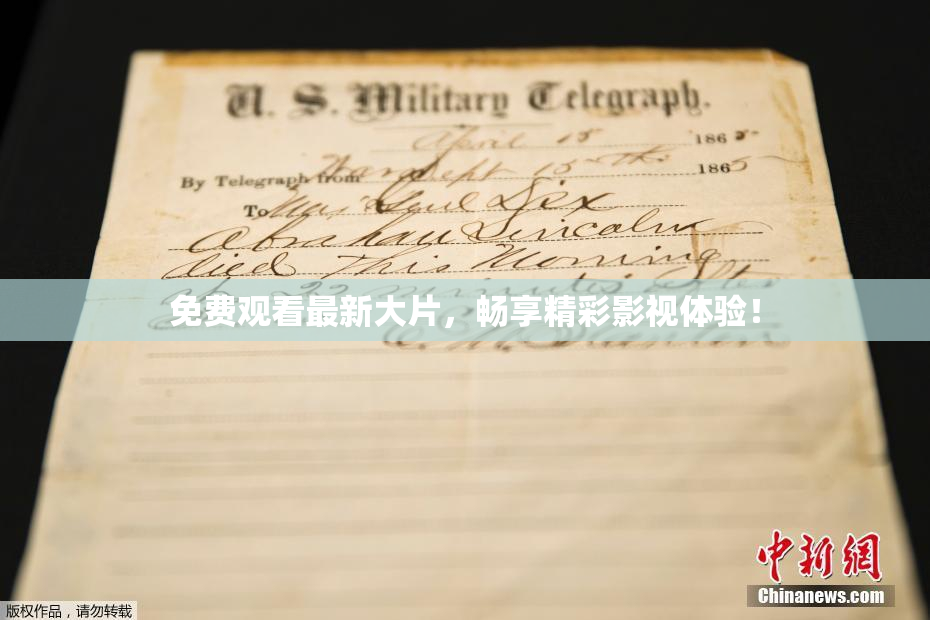 U. S. Military Telegraph.
April 15 1865
By Telegraph from War Dept 15th 1865
To Maj Genl Dix
Abraham Lincoln
died This Morning
at 22 minutes after
免费观看最新大片，畅享精彩影视体验！
E. M. Stanton
中新网
Chinanews.com
版权作品，请勿转载